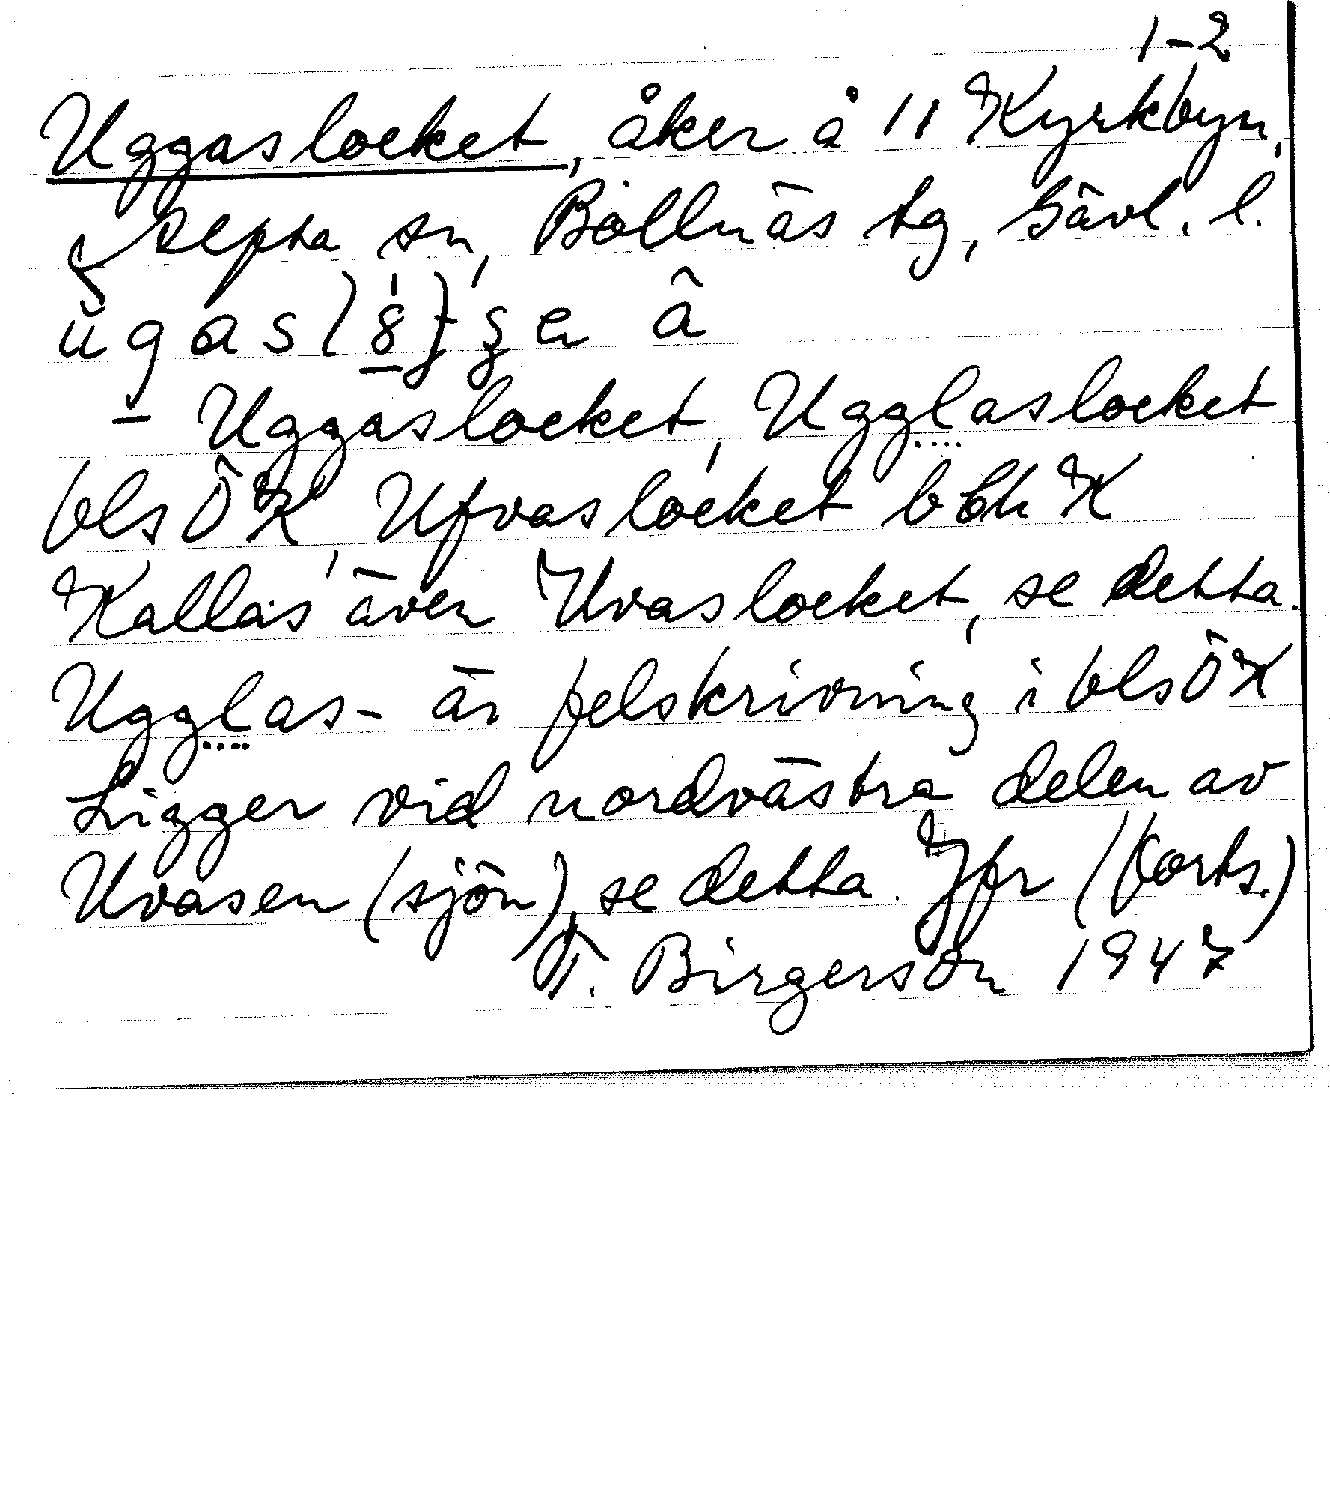 1-2
Uggaslocket, åker å 11 Kyrkbyn,
Segersta sn, Bollnäs tg, Gävl. l.
â
Uggaslocket, Ugglaslocket
bls ÖK, Ufvaslocket bbh K
Kallas även Uvaslocket, se detta.
Ugglas- är felskrivning i bls ÖK
Ligger vid nordvästra delen av
Uvasen (sjön), se detta. Jfr (forts.)
T. Birgerson 1947